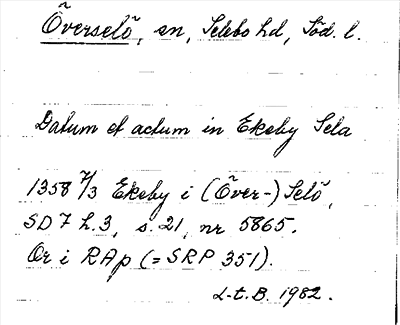 Överselö, sn, Selebo hd, Söd. l.
Datum et actum in Ekeby Sela
1358 7/3 Ekeby i (Över-)Selö,
SD 7 h.3, s. 21, nr 5865.
Or i RAp (= SRP 351).
L-t. B. 1982.